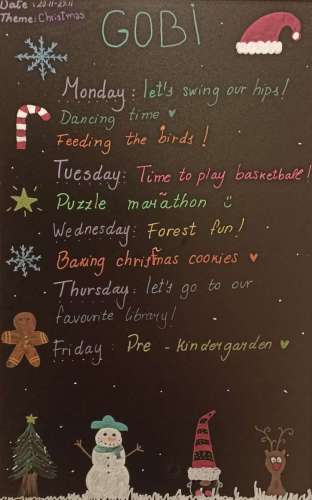 Date : 20.11-25.11
Theme: Christmas
GOBi
Monday : let's swing our hips!
Dancing time
Feeding the birds!
Tuesday: Time to play basketball!
Puzzle marathon
Wednesday: Forest fun!
Baking christmas cookies
Thursday: let's go to our
favourite library!
Friday : Pre - kindergarden